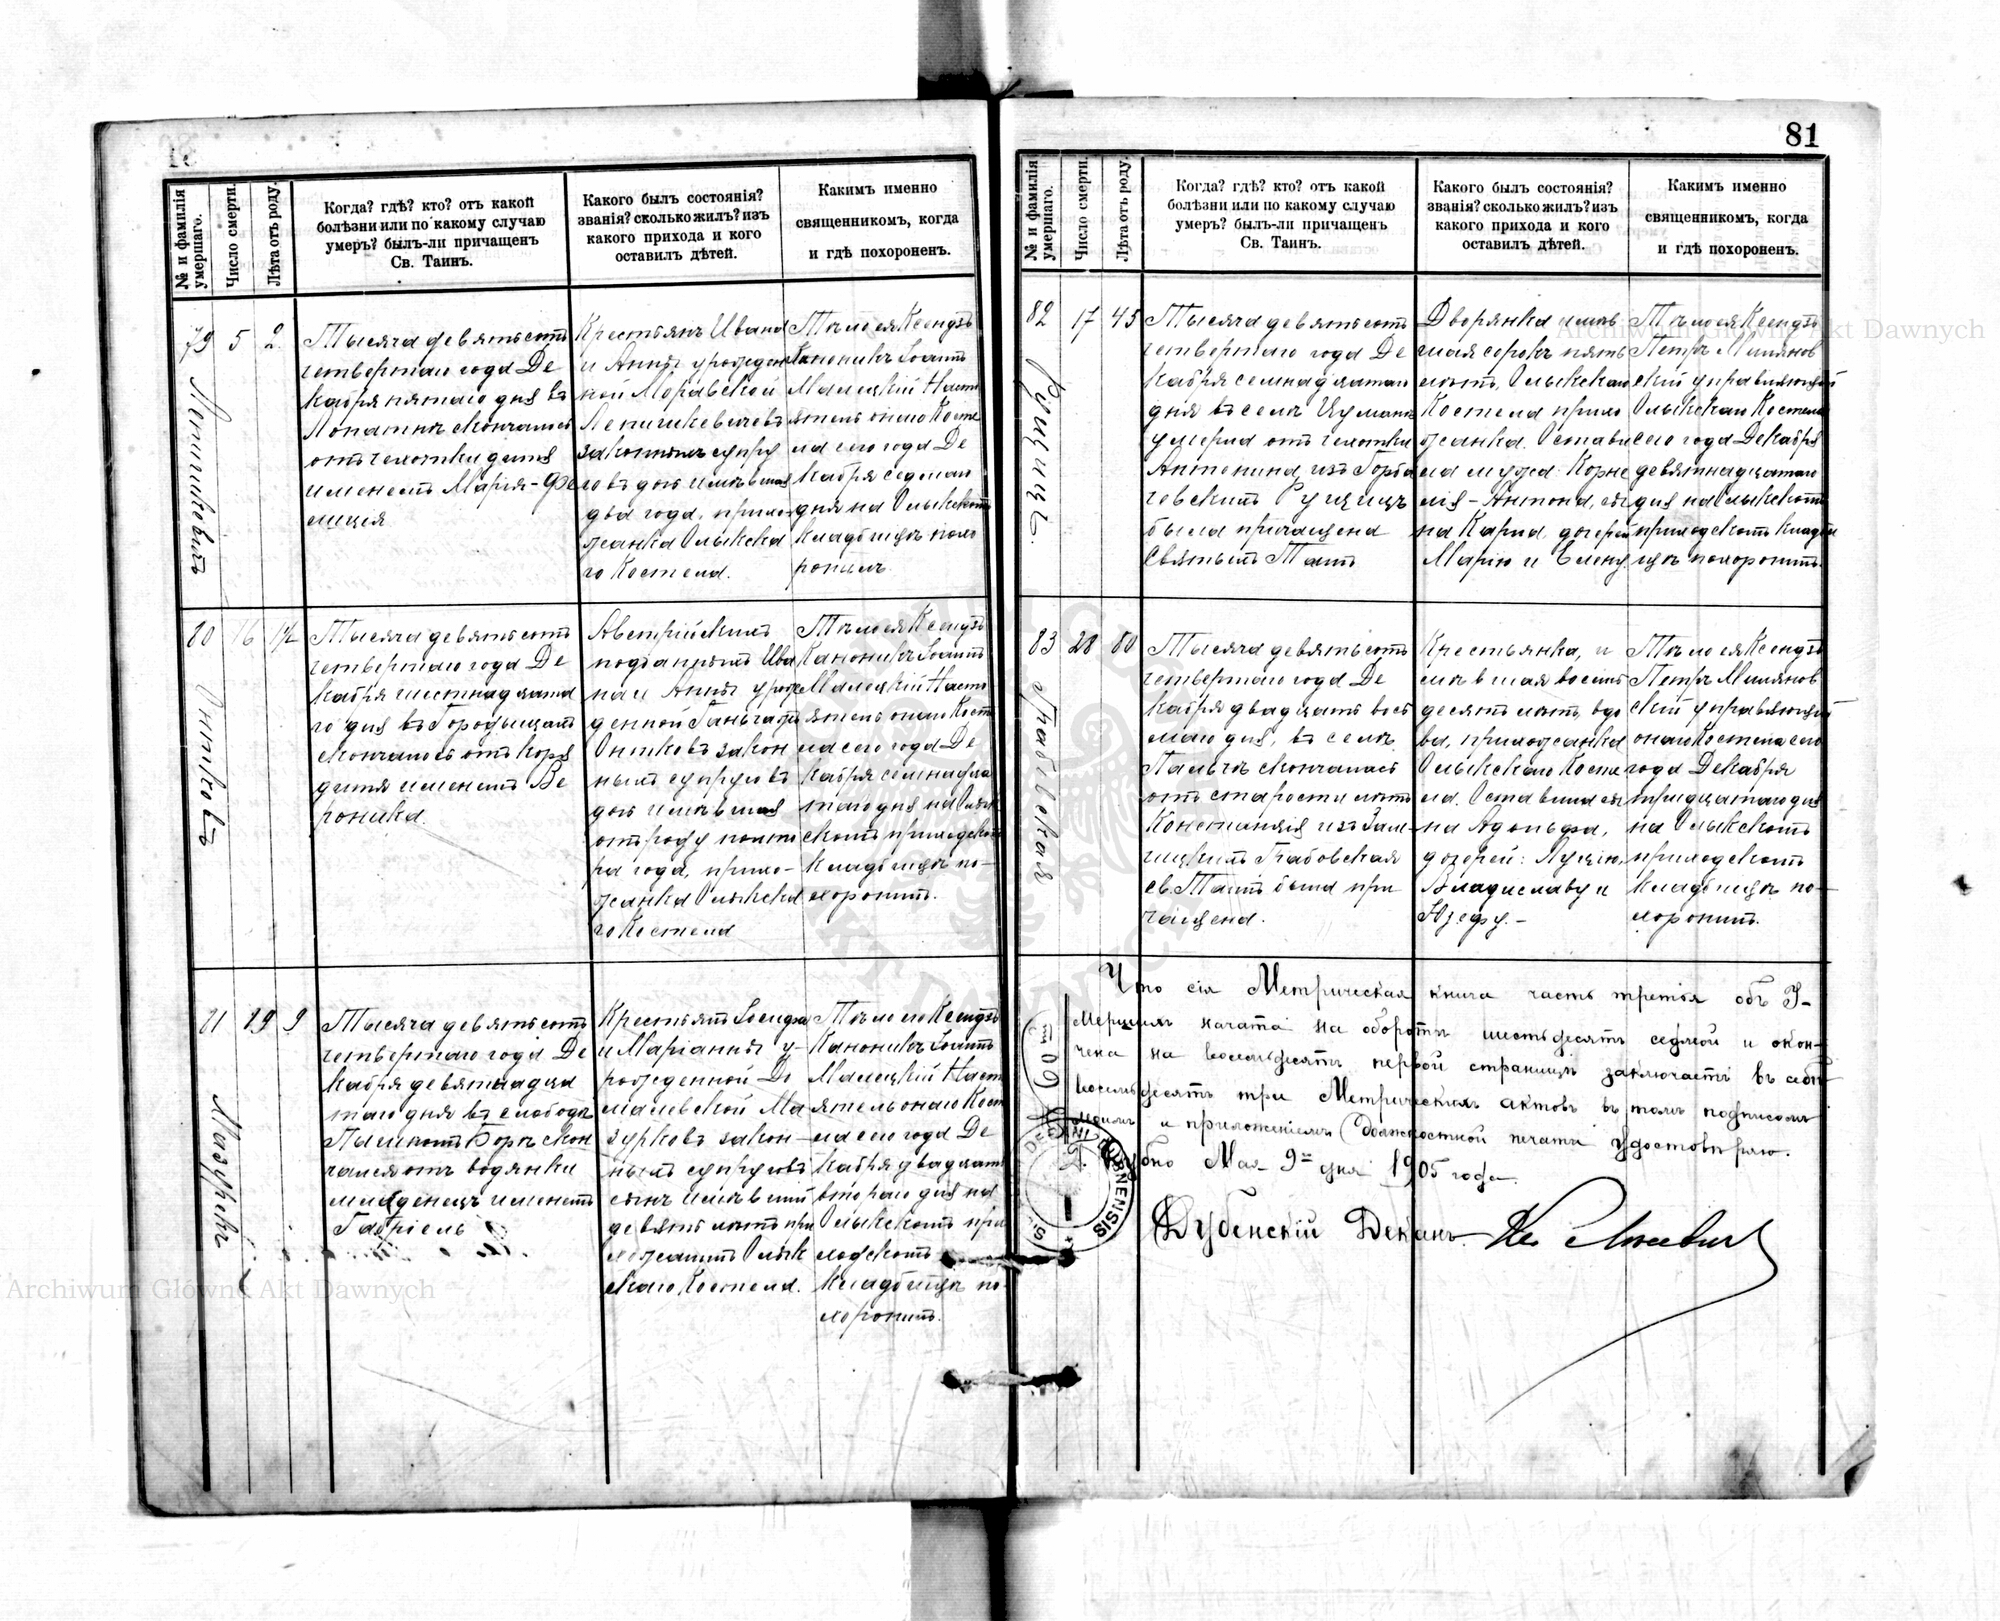 81
№ и фамилія умершаго.
Число смерти.
Лѣта отъ роду.
Когда? гдѣ? кто? отъ какой
болѣзни или по какому случаю
умеръ? былъ-ли причащенъ
Св. Таинъ.
Какого былъ состоянія?
званія? сколько жилъ? изъ
какого прихода и кого
оставилъ дѣтей.
Какимъ именно
священникомъ, когда
и гдѣ похороненъ.
79
5
2
Тысяча девятьсотъ
четвертаго года Де
кабря пятаго дня въ
Лопатнѣ скончалась
отъ чехотки дитя
именемъ Марія-Фе
лиція
Крестьянъ Ивана
и Анны урожден
ной Моравской
Лепишкевичевъ
законныхъ супру
говъ дочь имѣвшая
два года, прихо-
жанка Олыкска
го Костела.
Тѣло ея Ксендзъ
Каноникъ Іоаннъ
Малецкій Насто
ятель онаго Косте
ла сего года Де
кабря седмаго
дня на Олыкскомъ
кладбищѣ похо
ронилъ
80
16
1/2
Ониковъ
Тысяча девятьсотъ
четвертаго года Де
кабря шестнадцата
го дня въ Городищахъ
скончалась отъ коря
дитя именемъ Ве
роника.
Австрійскихъ
подданныхъ Ива
на и Анны урож
денной Ганьчаръ
Ониковъ закон
ныхъ супруговъ
дочь имѣвшая
отъ роду полто
ра года, прихо-
жанка Олыкска
го Костела
Тѣло ея Ксендзъ
Каноникъ Іоаннъ
Малецкій Насто
ятель онаго Косте
ла сего года Де
кабря семнадца
таго дня на Олык
скомъ приходскомъ
кладбищѣ по-
хоронилъ.
81
19
9
Мазурекъ
Тысяча девятьсотъ
четвертаго года Де
кабря девятнадца
таго дня въ слободѣ
скон
чался отъ водянки
младенецъ именемъ
Габріель
Крестьянъ Іосифа
и Маріанны у-
рожденной До
малевской Ма
зурковъ закон-
ныхъ супруговъ
сынъ имѣвшій
девять лѣтъ при
хожанинъ Олык
скаго Костела.
Тѣло его Ксендзъ
Каноникъ Іоаннъ
Малецкій Насто
ятель онаго Кост
ла сего года Де
кабря двадцать
втораго дня на
Олыкскомъ при
ходскомъ
кладбищѣ по-
хоронилъ.
№ и фамилія умершаго.
Число смерти.
Лѣта отъ роду.
Когда? гдѣ? кто? отъ какой
болѣзни или по какому случаю
умеръ? былъ-ли причащенъ
Св. Таинъ.
Какого былъ состоянія?
званія? сколько жилъ? изъ
какого прихода и кого
оставилъ дѣтей.
Какимъ именно
священникомъ, когда
и гдѣ похороненъ.
82
17
45
Руцицъ.
Тысяча девятьсотъ
четвертаго года Де
кабря семнадцатаго
дня въ селѣ Цуманѣ
умерла отъ чехотки
Антонина изъ Горба
чевскихъ Руцицъ
была причащена
Святыхъ Таинъ
Дворянка имѣв
шая сорокъ пять
лѣтъ, Олыкскаго
Костела прихо
жанка. Остави
ла мужа Корне
лія-Антона, сы
на Карла дочерей
Марію и Елену.
Тѣло ея Ксендзъ
Петръ Миляновскій
управляющій
Олыкскаго Костела
сего года Декабря
девятнадцатаго
дня на Олыкскомъ
приходскомъ кладби
щѣ похоронилъ.
83
28
80
Грабовская
Тысяча девятьсотъ
четвертаго года Де
кабря двадцать вось
маго дня, въ селѣ
Пальчѣ скончалась
отъ старости лѣтъ
Констанція изъ
Грабовская
св. Таинъ была при
чащена.
Крестьянка, и
мѣвшая восемь
десятъ лѣтъ, вдо
ва, прихожанка
Олыкскаго Косте
ла. Оставила сы
на Адольфа,
дочерей: Луцію,
Владиславу и
Юзефу.-
Тѣло ея Ксендзъ
Петръ Миляновскій
управляющій
онаго Костела сего
года Декабря
тридцатаго дня
на Олыкскомъ
приходскомъ
кладбищѣ по-
хоронилъ.
Что сія Метрическая книга часть третья объ У-
мершихъ начата на оборотѣ шестьдесятъ седмой и окон-
чена на восемьдесятъ первой страницѣ заключаетъ въ себѣ
восемьдесятъ три Метрическихъ актовъ въ томъ подписомъ
моимъ и приложеніемъ должностной печати удостовѣряю.
Г. Дубно Мая 9 дня 1905 года.
Дубенскій Деканъ
DUBNENSIS
Archiwum Główne Akt Dawnych
Akt Dawnych